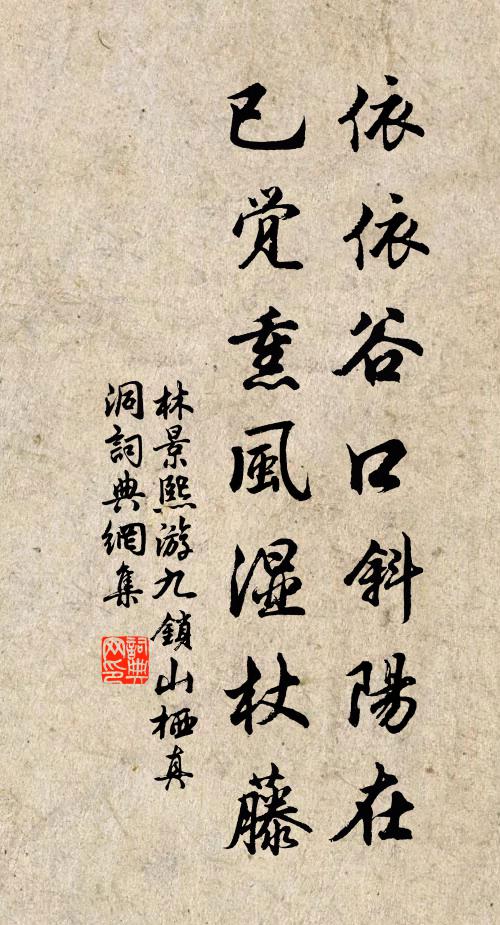 依依谷口斜陽在
已觉熏風湿杖藤
林景熙游九鎖山栖真
洞詞典網集
詞典网印